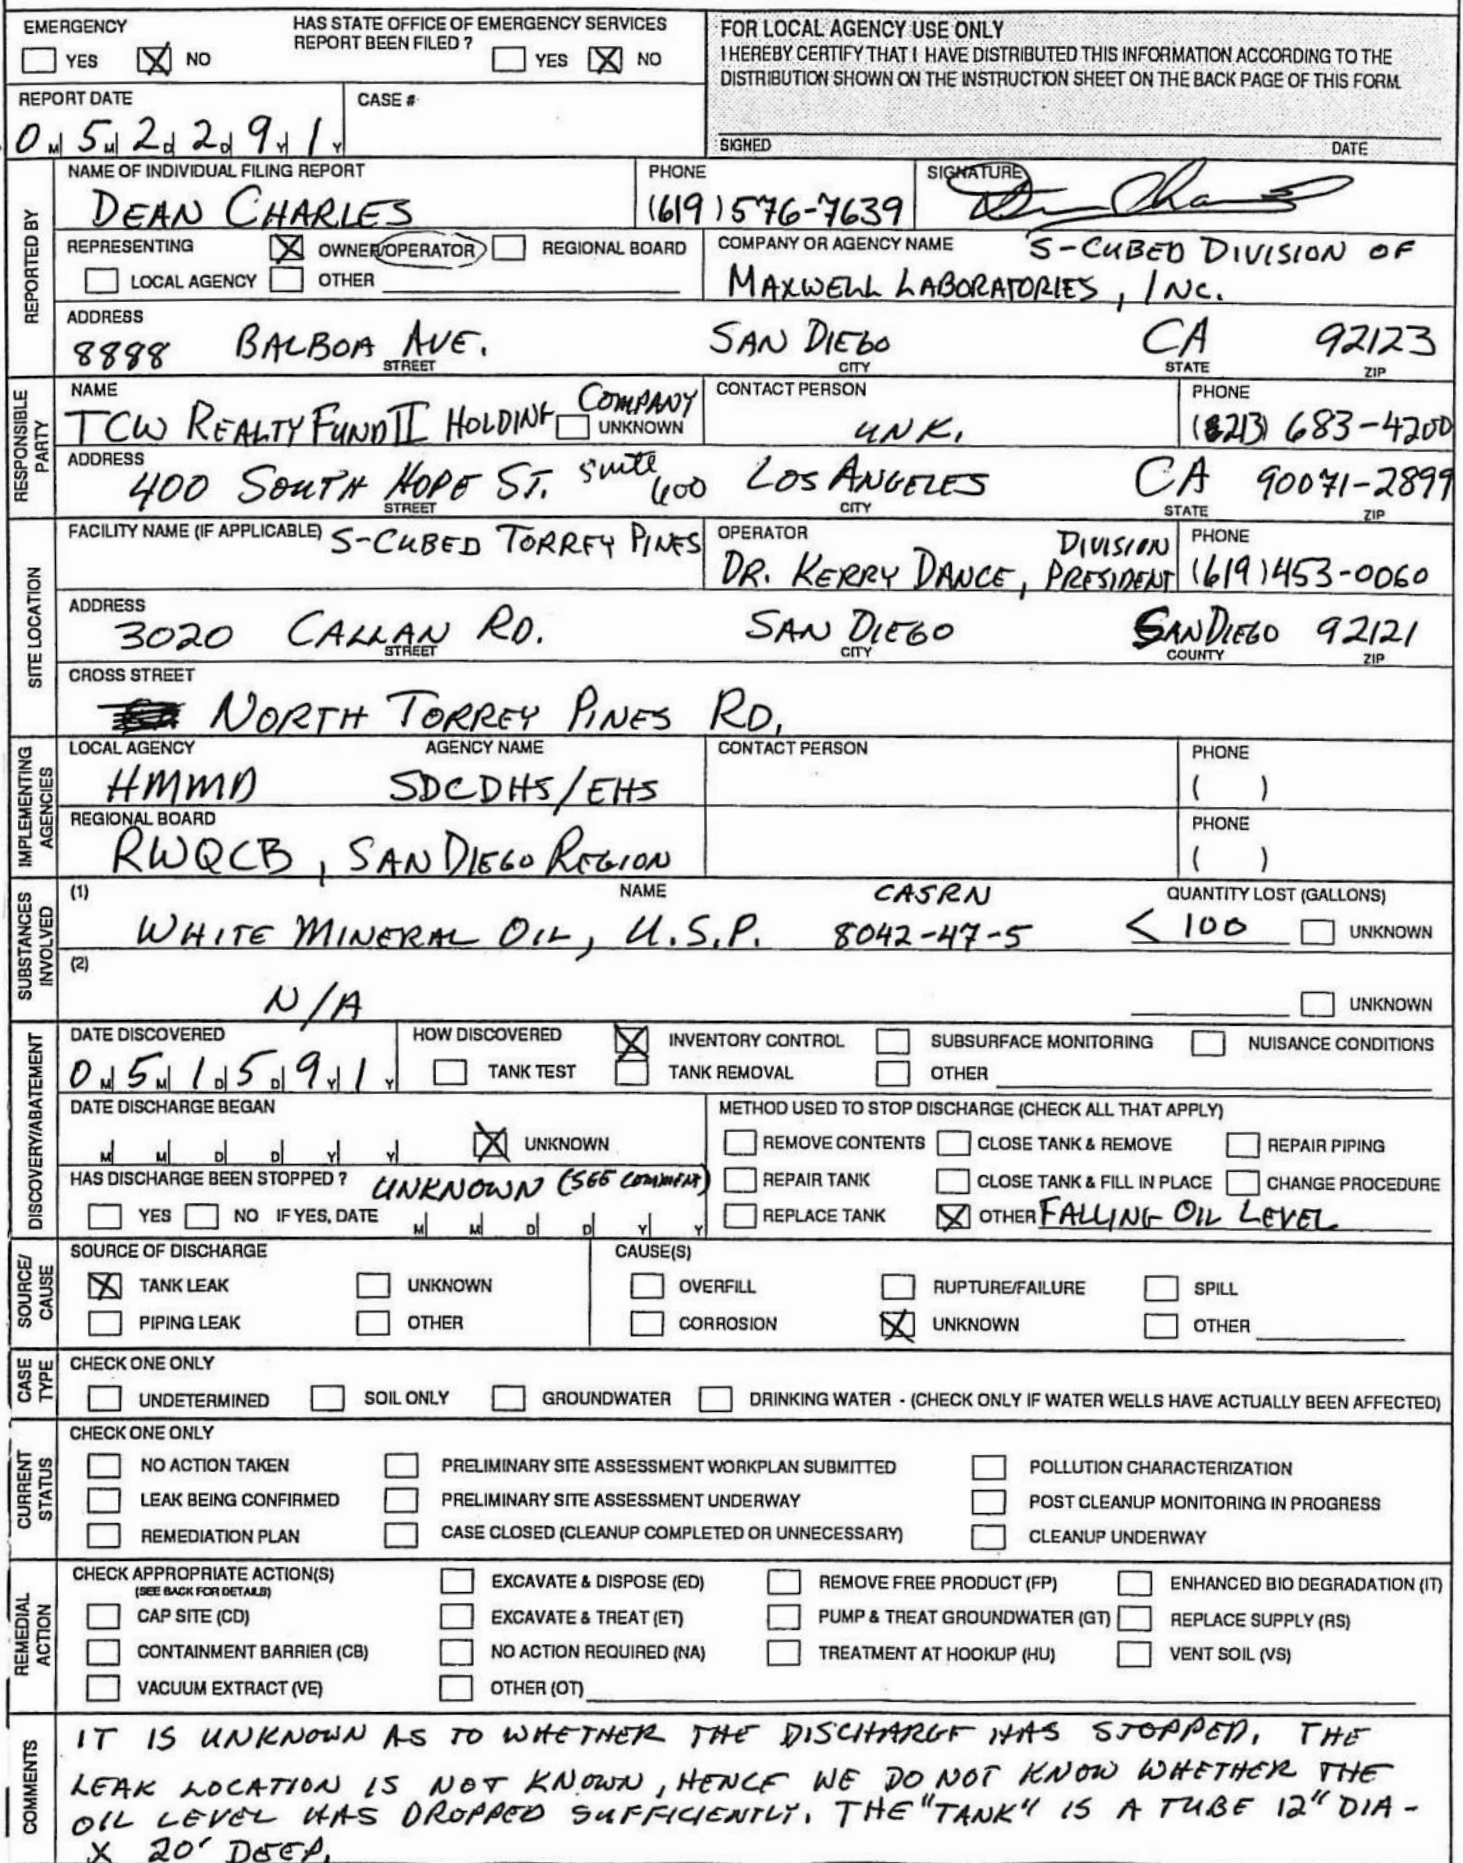 EMERGENCY
YES NO
HAS STATE OFFICE OF EMERGENCY SERVICES
REPORT BEEN FILED ? YES NO
FOR LOCAL AGENCY USE ONLY
I HEREBY CERTIFY THAT I HAVE DISTRIBUTED THIS INFORMATION ACCORDING TO THE
DISTRIBUTION SHOWN ON THE INSTRUCTION SHEET ON THE BACK PAGE OF THIS FORM.
SIGNED DATE
REPORT DATE
0 M 5 M 2 D 2 D 9 Y 1 Y
CASE #
REPORTED BY
NAME OF INDIVIDUAL FILING REPORT
DEAN CHARLES
PHONE
(619) 576-7639
SIGNATURE
REPRESENTING OWNER/OPERATOR REGIONAL BOARD
LOCAL AGENCY OTHER
COMPANY OR AGENCY NAME S-CUBED DIVISION OF
MAXWELL LABORATORIES, INC.
ADDRESS
8888 BALBOA AVE. SAN DIEGO CA 92123
STREET CITY STATE ZIP
RESPONSIBLE PARTY
NAME
TCW REALTY FUND II HOLDING COMPANY
UNKNOWN
CONTACT PERSON
UNK.
PHONE
(213) 683-4200
ADDRESS
400 SOUTH HOPE ST. Suite 600 LOS ANGELES CA 90071-2899
STREET CITY STATE ZIP
SITE LOCATION
FACILITY NAME (IF APPLICABLE) S-CUBED TORREY PINES
OPERATOR
DR. KERRY DANCE, DIVISION PRESIDENT
PHONE
(619) 453-0060
ADDRESS
3020 CALLAN RD. SAN DIEGO SAN DIEGO 92121
STREET CITY COUNTY ZIP
CROSS STREET
NORTH TORREY PINES RD.
IMPLEMENTING AGENCIES
LOCAL AGENCY AGENCY NAME
HMMD SDCDHS/EHS
CONTACT PERSON
PHONE
( )
REGIONAL BOARD
RWQCB, SAN DIEGO REGION
PHONE
( )
SUBSTANCES INVOLVED
(1) NAME CASRN QUANTITY LOST (GALLONS)
WHITE MINERAL OIL, U.S.P. 8042-47-5 < 100 UNKNOWN
(2)
N/A UNKNOWN
DISCOVERY/ABATEMENT
DATE DISCOVERED
0 M 5 M 1 D 5 D 9 Y 1 Y
HOW DISCOVERED INVENTORY CONTROL SUBSURFACE MONITORING NUISANCE CONDITIONS
TANK TEST TANK REMOVAL OTHER
DATE DISCHARGE BEGAN
M M D D Y Y UNKNOWN
HAS DISCHARGE BEEN STOPPED ? UNKNOWN (SEE COMMENT)
YES NO IF YES, DATE M M D D Y Y
METHOD USED TO STOP DISCHARGE (CHECK ALL THAT APPLY)
REMOVE CONTENTS CLOSE TANK & REMOVE REPAIR PIPING
REPAIR TANK CLOSE TANK & FILL IN PLACE CHANGE PROCEDURE
REPLACE TANK OTHER FALLING OIL LEVEL
SOURCE/ CAUSE
SOURCE OF DISCHARGE
TANK LEAK UNKNOWN
PIPING LEAK OTHER
CAUSE(S)
OVERFILL RUPTURE/FAILURE SPILL
CORROSION UNKNOWN OTHER
CASE TYPE
CHECK ONE ONLY
UNDETERMINED SOIL ONLY GROUNDWATER DRINKING WATER - (CHECK ONLY IF WATER WELLS HAVE ACTUALLY BEEN AFFECTED)
CURRENT STATUS
CHECK ONE ONLY
NO ACTION TAKEN PRELIMINARY SITE ASSESSMENT WORKPLAN SUBMITTED POLLUTION CHARACTERIZATION
LEAK BEING CONFIRMED PRELIMINARY SITE ASSESSMENT UNDERWAY POST CLEANUP MONITORING IN PROGRESS
REMEDIATION PLAN CASE CLOSED (CLEANUP COMPLETED OR UNNECESSARY) CLEANUP UNDERWAY
REMEDIAL ACTION
CHECK APPROPRIATE ACTION(S)
(SEE BACK FOR DETAILS)
EXCAVATE & DISPOSE (ED) REMOVE FREE PRODUCT (FP) ENHANCED BIO DEGRADATION (IT)
CAP SITE (CD) EXCAVATE & TREAT (ET) PUMP & TREAT GROUNDWATER (GT) REPLACE SUPPLY (RS)
CONTAINMENT BARRIER (CB) NO ACTION REQUIRED (NA) TREATMENT AT HOOKUP (HU) VENT SOIL (VS)
VACUUM EXTRACT (VE) OTHER (OT)
COMMENTS
IT IS UNKNOWN AS TO WHETHER THE DISCHARGE HAS STOPPED. THE
LEAK LOCATION IS NOT KNOWN, HENCE WE DO NOT KNOW WHETHER THE
OIL LEVEL HAS DROPPED SUFFICIENTLY. THE "TANK" IS A TUBE 12" DIA -
X 20' DEEP.